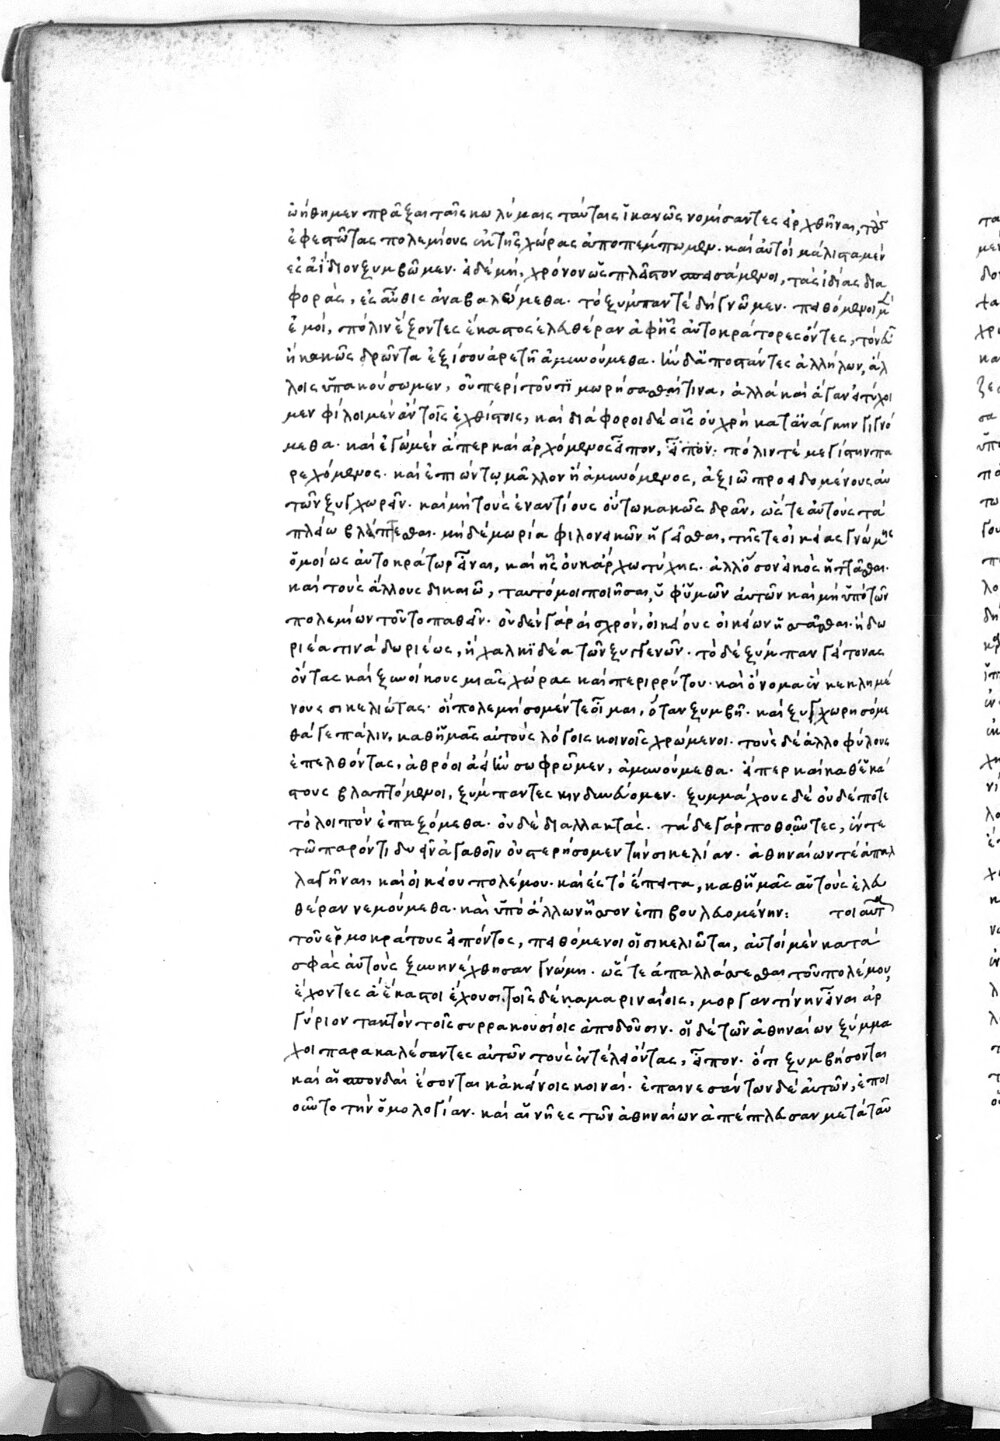 ὠήθημεν πρᾶξαι ταῖς κωλύμαις ταύταις ἱκανῶς νομίσαντες εἰρχθῆναι, τοὺς
ἐφεστῶτας πολεμίους ἐκ τῆς χώρας ἀποπέμπωμεν. καὶ αὐτοὶ μάλιστα μὲν
ἐς ἀΐδιον ξυμβῶμεν. εἰ δὲ μή, χρόνον ὡς πλεῖστον σπεισάμενοι, τὰς ἰδίας δια
φοράς, ἐς αὖθις ἀναβαλώμεθα. τὸ ξύμπαν τὲ δὴ γνῶμεν. πειθόμενοι μὲν
ἐμοί, πόλιν ἕξοντες ἕκαστος ἐλευθέραν ἀφ' ἧς αὐτοκράτορες ὄντες, τὸν εὖ
ἢ κακῶς δρῶντα ἐξ ἴσου ἀρετῇ ἀμυνούμεθα. ἢν δ' ἀποστάντες ἀλλήλων, ἄλ
λοις ὑπακούσωμεν, οὐ περὶ τοῦ τιμωρήσασθαί τινα, ἀλλὰ καὶ ἄγαν εἰ τύχοι
μεν φίλοι μὲν ἂν τοῖς ἐχθίστοις, καὶ διάφοροι δὲ αἷς οὐ χρὴ κατ' ἀνάγκην γιγνό
μεθα. καὶ ἐγὼ μὲν ἅπερ καὶ ἀρχόμενος εἶπον, εἶπον: πόλιν τὲ μεγίστην πα
ρεχόμενος. καὶ ἐπιών τῳ μᾶλλον ἢ ἀμυνόμενος, ἀξιῶ προειδομένους αὐ
τῶν ξυγχωρεῖν. καὶ μὴ τοὺς ἐναντίους οὕτω κακῶς δρᾶν, ὥς τε αὐτοὺς τὰ
πλείω βλάπτεσθαι. μὴ δὲ μωρίᾳ φιλονεικῶν ἡγεῖσθαι, τῆς τε οἰκείας γνώμης
ὁμοίως αὐτοκράτωρ εἶναι, καὶ ἧς οὐκ ἄρχω τύχης. ἀλλ' ὅσον εἰκὸς ἡσσᾶσθαι.
καὶ τοὺς ἄλλους δικαιῶ, ταυτό μοι ποιῆσαι, ὑφ' ὑμῶν αὐτῶν καὶ μὴ ὑπὸ τῶν
πολεμίων τοῦτο παθεῖν. οὐδὲν γὰρ αἰσχρόν, οἰκείους οἰκείων ἡσσᾶσθαι. ἢ δω
ριέα τινὰ δωριέως, ἢ χαλκιδέα τῶν ξυγγενῶν. τὸ δὲ ξύμπαν γείτονας
ὄντας καὶ ξυνοίκους μιᾶς χώρας καὶ περιρρύτου. καὶ ὄνομα ἓν κεκλημέ
νους σικελιώτας. οἳ πολεμήσομέν τε οἶμαι, ὅταν ξυμβῇ. καὶ ξυγχωρησόμε
θά γε πάλιν, καθ' ἡμᾶς αὐτοὺς λόγοις κοινοῖς χρώμενοι. τοὺς δὲ ἀλλοφύλους
ἐπελθόντας, ἀθρόοι ἀεὶ ἢν σωφρῶμεν, ἀμυνούμεθα. εἴπερ καὶ καθ' ἑκά
στους βλαπτόμενοι, ξύμπαντες κινδυνεύομεν. ξυμμάχους δὲ οὐδέποτε
τὸ λοιπὸν ἐπαξόμεθα. οὐδὲ διαλλακτάς. τάδε γὰρ ποιοῦντες, ἔν τε
τῷ παρόντι δυεῖν ἀγαθοῖν οὐ στερήσομεν τὴν σικελίαν. ἀθηναίων τὲ ἀπαλ
λαγῆναι, καὶ οἰκείου πολέμου. καὶ ἐς τὸ ἔπειτα, καθ' ἡμᾶς αὐτοὺς ἐλευ
θέραν νεμούμεθα. καὶ ὑπὸ ἄλλων ἧσσον ἐπιβουλευομένην: τοιαῦτα
τοῦ ἑρμοκράτους εἰπόντος, πειθόμενοι οἱ σικελιῶται, αὐτοὶ μὲν κατὰ
σφᾶς αὐτοὺς ξυνηνέχθησαν γνώμῃ. ὥς τε ἀπαλλάσσεσθαι τοῦ πολέμου,
ἔχοντες ἃ ἕκαστοι ἔχουσι. τοῖς δὲ καμαριναίοις, μοργαντίνην εἶναι ἀρ
γύριον τακτὸν τοῖς συρρακουσίοις ἀποδοῦσιν. οἱ δὲ τῶν ἀθηναίων ξύμμα
χοι παρακαλέσαντες αὐτῶν τοὺς ἐν τέλει ὄντας, εἶπον. ὅτι ξυμβήσονται
καὶ αἱ σπονδαὶ ἔσονται κἀκείνοις κοιναί. ἐπαινεσάντων δὲ αὐτῶν, ἐποι
οῦντο τὴν ὁμολογίαν. καὶ αἱ νῆες τῶν ἀθηναίων ἀπέπλευσαν μετὰ ταῦ